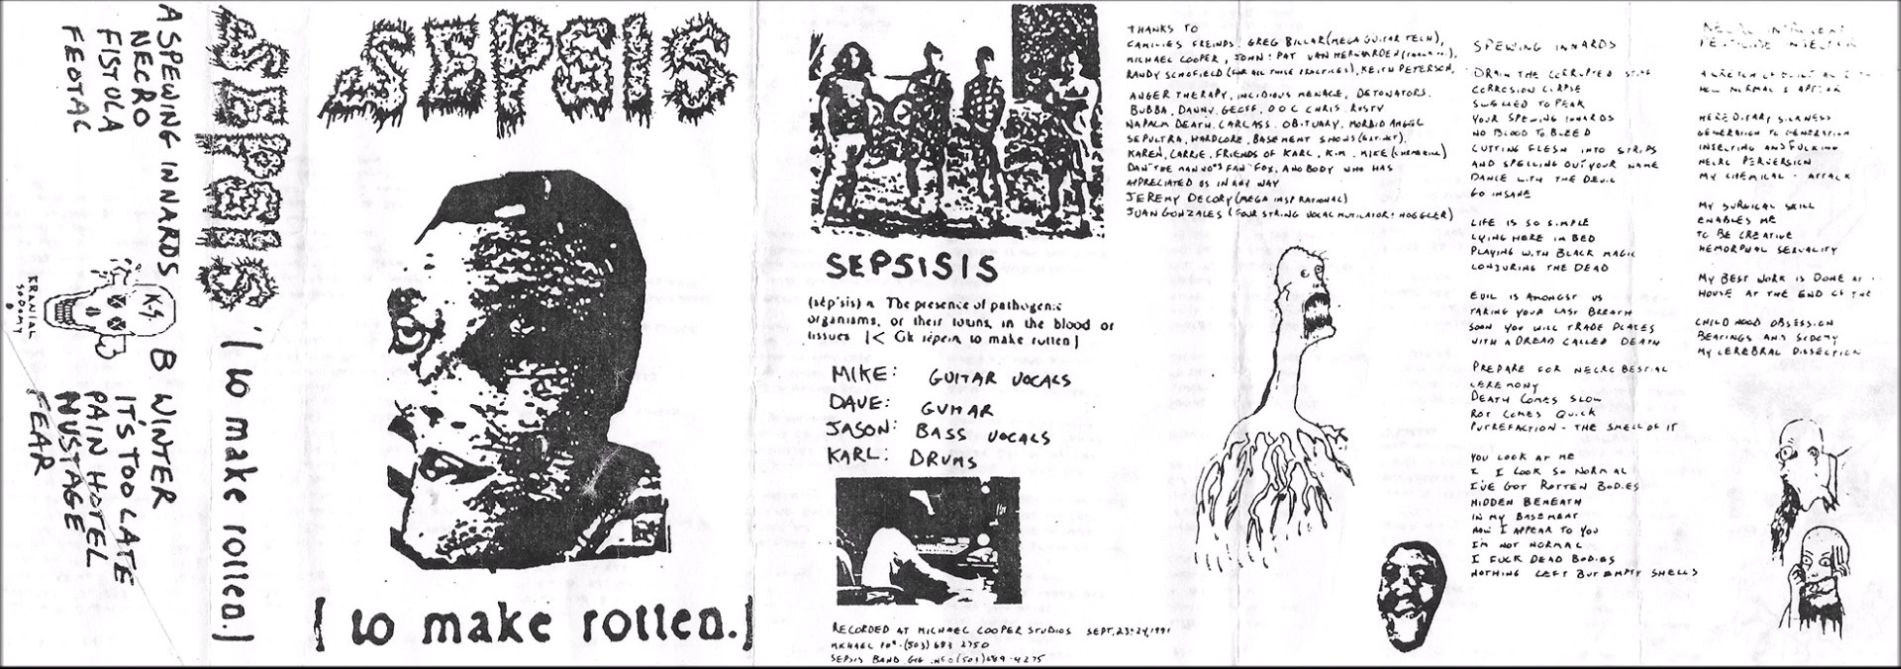 A SPEWING INNARDS
NECRO
FISTULA
FEOTAL
B WINTER
IT'S TOO LATE
PAIN HOTEL
NUSTAGE
FEAR
KS
KRANIAL
SODOMY
SEPSIS
[ to make rotten.]
SEPSIS
[ to make rotten.]
SEPSISIS
(sep'sis) n The presence of pathogenic
organisms, or their toxins, in the blood or
tissues [< Gk sepein to make rotten]
MIKE: GUITAR VOCALS
DAVE: GUITAR
JASON: BASS VOCALS
KARL: DRUMS
RECORDED AT MICHAEL COOPER STUDIOS SEPT, 23-24, 1991
MICHAEL PH#-(503) 683 2750
SEPSIS BAND GIG INFO (503) 689-4275
THANKS TO
CAMILIES FREINDS. GREG BILLAR (MEGA GUITAR TECH),
MICHAEL COOPER, JOHN: PAT VAN HERWARDEN
RANDY SCHOFIELD (FOR ALL THOSE PRACTICES), KEITH PETERSON,
ANGER THERAPY, INCIDIOUS MENACE, DETONATORS.
BUBBA, DANNY, GEOFF, DOC CHRIS RUSTY
NAPALM DEATH, CARCASS, OBITUARY, MORBID ANGEL
SEPULTRA, HARDCORE, BASEMENT SHOWS
KAREN, CARRIE, FRIENDS OF KARL, KIM, MIKE
DAN "THE MAN NO*S FAN" FOX, ANOBODY WHO HAS
APPRECIATED US IN ANY WAY
JEREMY DECORY (MEGA INSPIRATIONAL)
JUAN GONZALES (FOUR STRING VOCAL MUTILATOR: HOGGLER)
SPEWING INNARDS
DRAIN THE CORRUPTED
CORROSION CORPSE
SWELLED TO PEAK
YOUR SPEWING INNARDS
NO BLOOD TO BLEED
CUTTING FLESH INTO STRIPS
AND SPELLING OUT YOUR NAME
DANCE WITH THE DEVIL
GO INSANE
LIFE IS SO SIMPLE
LYING HERE IN BED
PLAYING WITH BLACK MAGIC
CONJURING THE DEAD
EVIL IS AMONGST US
TAKING YOUR LAST BREATH
SOON YOU WILL TRADE PLACES
WITH A DREAD CALLED DEATH
PREPARE FOR NECRO BESTIAL
CEREMONY
DEATH COMES SLOW
ROT COMES QUICK
PUTREFACTION - THE SMELL OF IT
YOU LOOK AT ME
I I LOOK SO NORMAL
I'VE GOT ROTTEN BODIES
HIDDEN BENEATH
IN MY BASEMENT
HOW I APPEAR TO YOU
I'M NOT NORMAL
I FUCK DEAD BODIES
NOTHING LEFT BUT EMPTY SHELLS
HOW NORMAL I APPEAR
HEREDITARY SICKNESS
GENERATION TO GENERATION
INSECTING AND FUCKING
NECRO PERVERSION
MY CHEMICAL - ATTACK
MY SURGICAL SKILL
ENABLES ME
TO BE CREATIVE
HEMORPHUAL SEXUALITY
MY BEST WORK IS DONE AT
HOUSE AT THE END OF THE
CHILD HOOD OBSESSION
BEATINGS AND SODOMY
MY CEREBRAL DISSECTION